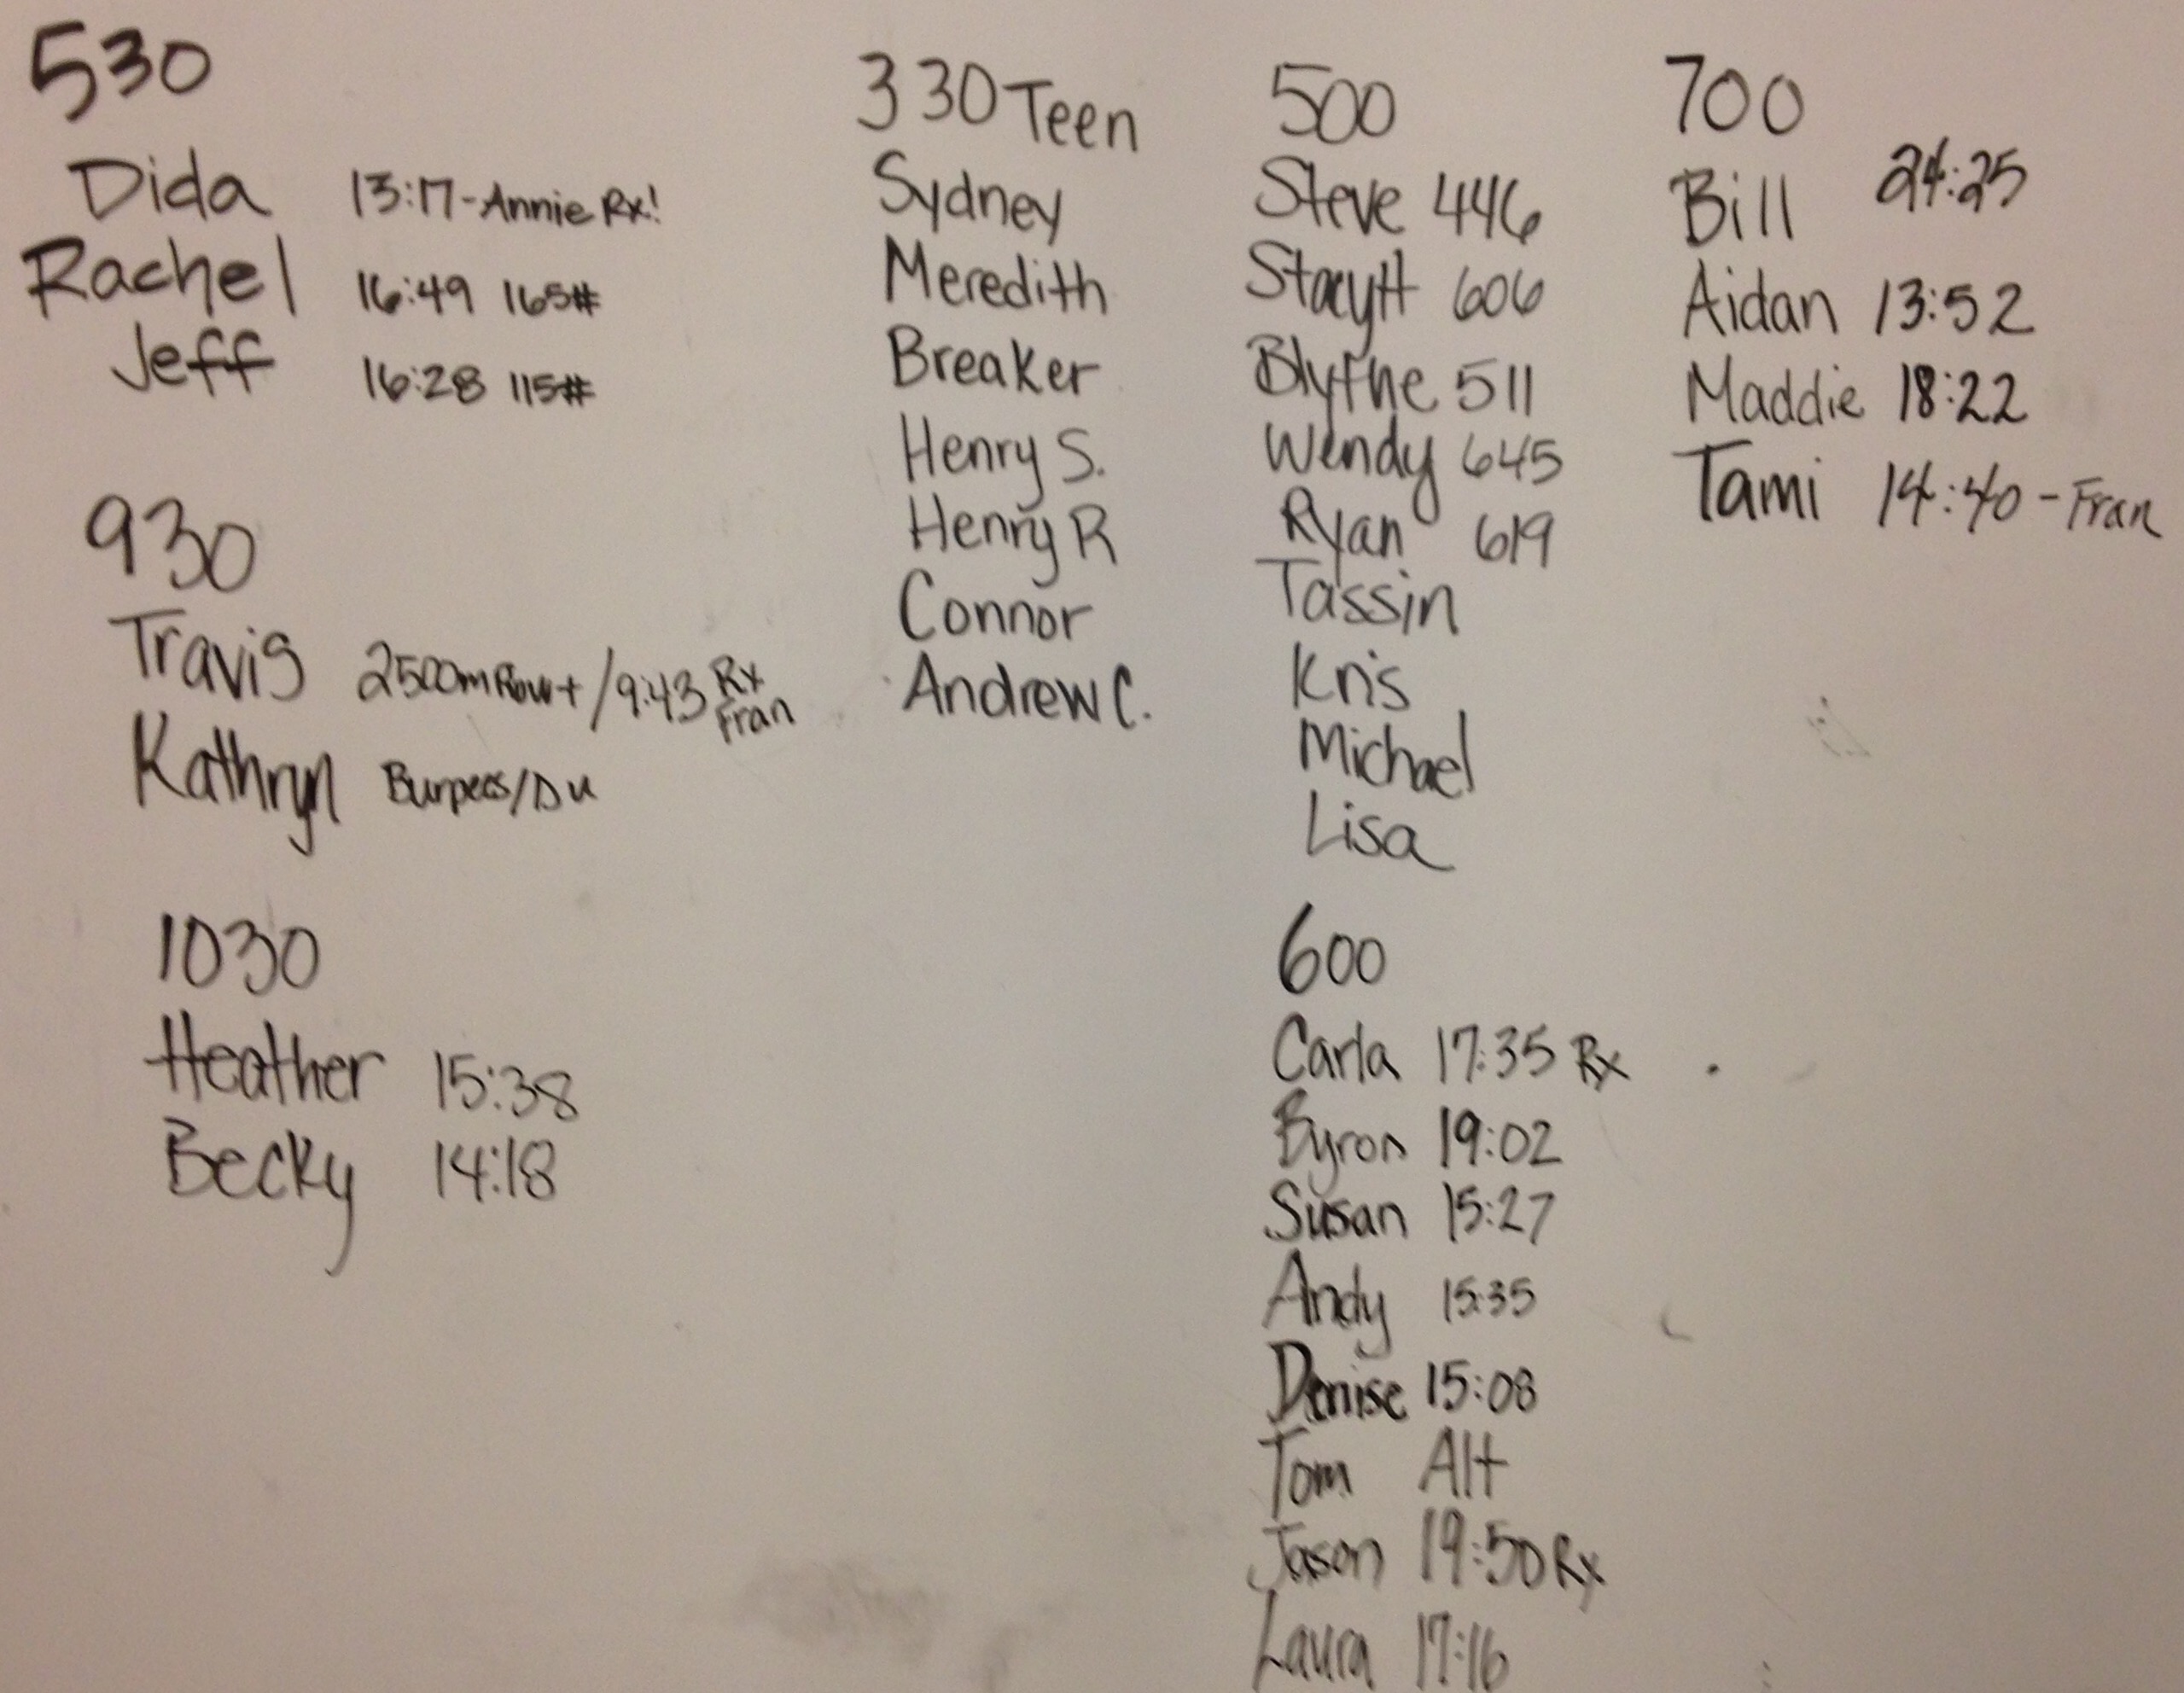 530
Dida 13:17-Annie Rx!
Rachel 16:49 165#
Jeff 16:28 115#
930
Travis 2500m Row+/9:43 Rx
Fran
Kathryn Burpees/Du
1030
Heather 15:38
Becky 14:18
330 Teen
Sydney
Meredith
Breaker
Henry S.
Henry R
Connor
Andrew C.
500
Steve 446
Stacy H 606
Blythe 511
Wendy 645
Ryan 619
Tassin
Kris
Michael
Lisa
600
Carla 17:35 Rx
Byron 19:02
Susan 15:27
Andy 15:35
Denise 15:08
Tom Alt
Jason 19:50 Rx
Laura 17:16
700
Bill 24:25
Aidan 13:52
Maddie 18:22
Tami 14:40-Fran